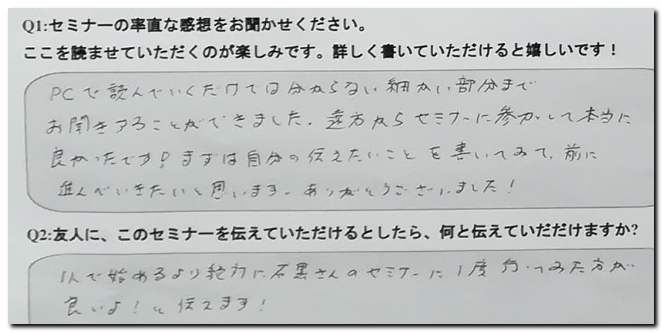 Q1:セミナーの率直な感想をお聞かせください。
ここを読ませていただくのが楽しみです。詳しく書いていただけると嬉しいです！
PCで読んでいくだけでは分からない細かい部分まで
お聞きすることができました。遠方からセミナーに参加して本当に
良かったです！まずは自分の伝えたいことを書いてみて、前に
進んでいきたいと思います。ありがとうございました！
Q2:友人に、このセミナーを伝えていただけるとしたら、何と伝えていだだけますか?
1人で始めるより絶対に石黒さんのセミナーに1度行ってみた方が
良いよ！と伝えます！